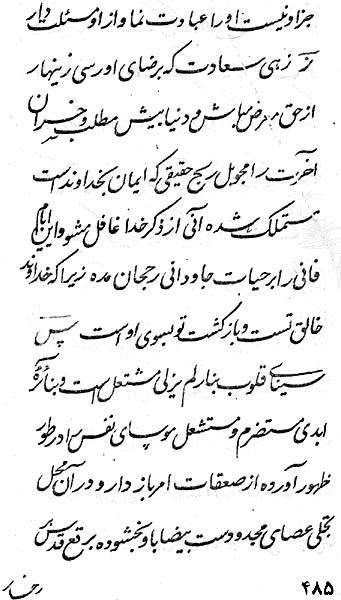 جز او نیست او را عبادت نما و از او مسئلت دار
زهی سعادت که برضای او رسی زینهار
از حق معرض مباش و دنیا بیش مطلب و خسران
آخرت را مجو بل ربح حقیقی که ایمان بخداوند است
متمسک شده آنی از ذکر خدا غافل مشو و این ایام
فانی را بر حیات جاودانی رجحان مده زیرا که خداوند
خالق تست و بازگشت تو بسوی او است پس
سینای قلوب بنار لم یزلی مشتعل است و بنائره
ابدی مستضرم و مستشعل موسای نفس را در طور
ظهور آورده از صعقات امر باز دار و در آن محل
تجلی عصای محدود دست بیضا بی و بخشوده برقع قدس
۴۸۵ رخسار